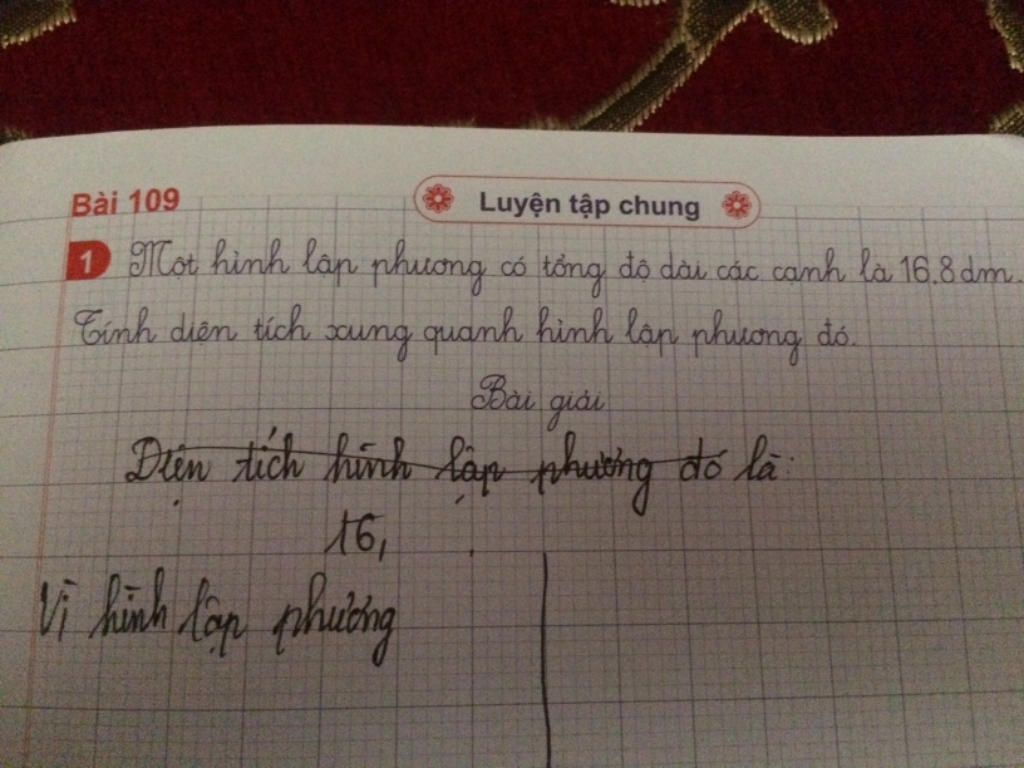 Bài 109
Luyện tập chung
1 Một hình lập phương có tổng độ dài các cạnh là 16,8 dm.
Tính diện tích xung quanh hình lập phương đó.
Bài giải
Diện tích hình lập phương đó là:
16,
Vì hình lập phương